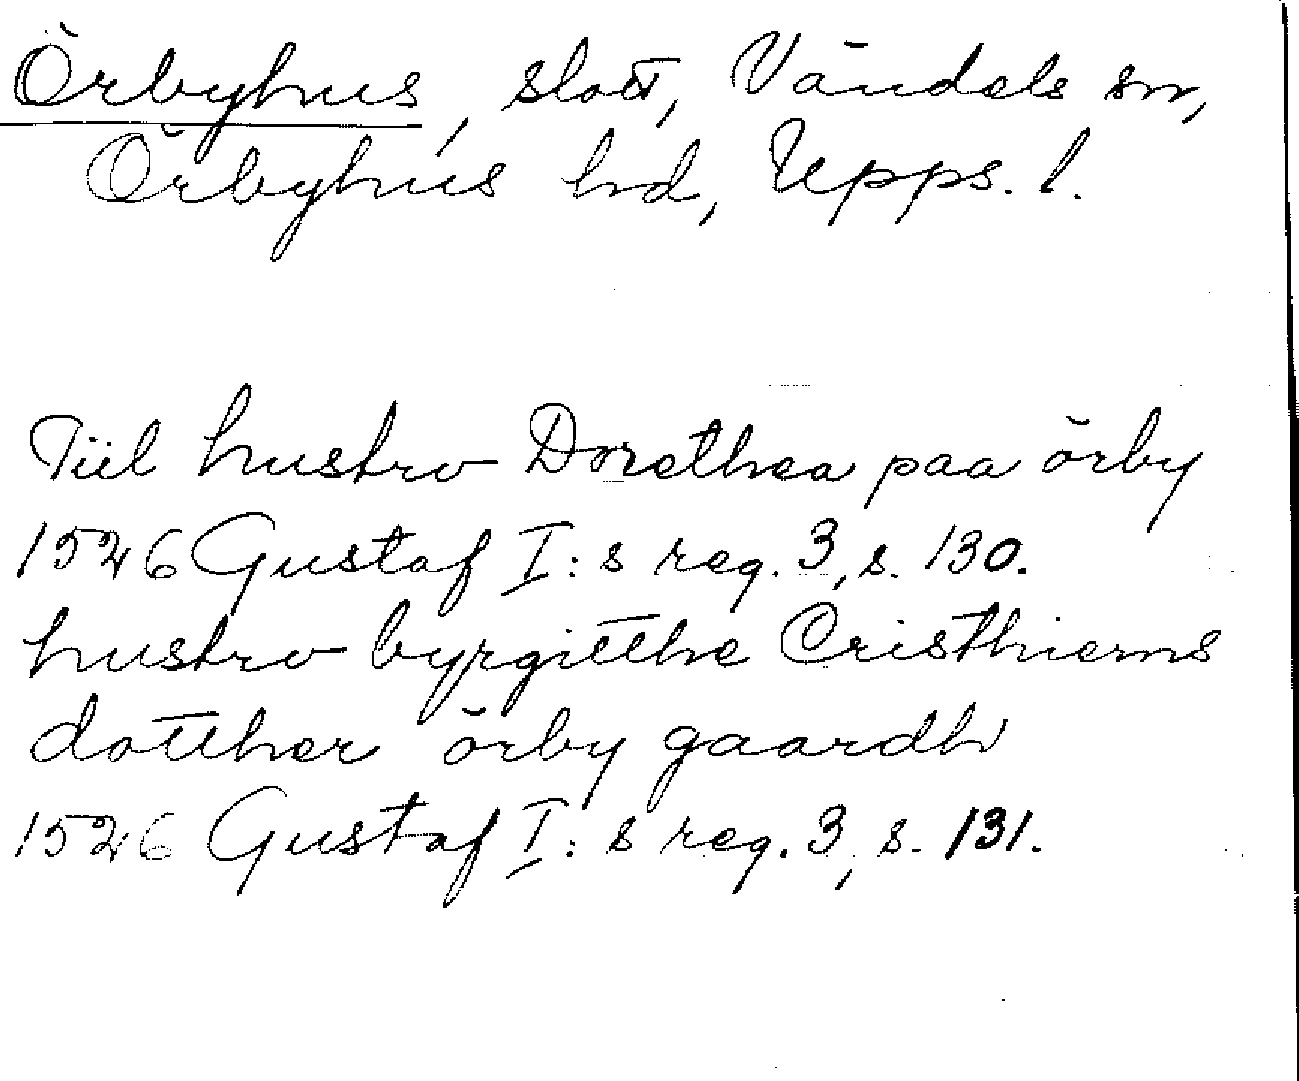 Örbyhus, slott, Vändels sn,
Örbyhus hd, Upps. l.
Tiil hustrv Dorethea paa örby
1526 Gustaf I:s reg. 3, s. 130.
hustrv byrgitthe Cristhierns
dotther örby gaardh
1526 Gustaf I:s reg. 3, s. 131.